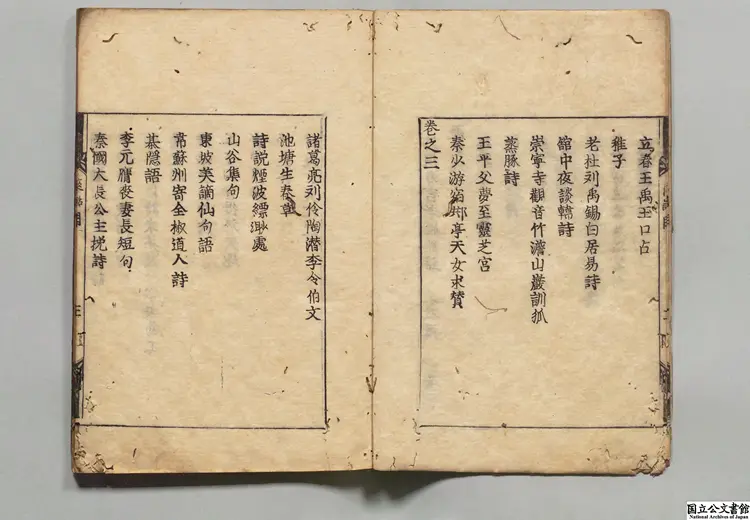 立春王禹玉口占
稚子
老杜刘禹錫白居易詩
舘中夜談轄詩
崇寧寺觀音竹澹山巖訓狐
蒸豚詩
王平父夢至靈芝宫
秦少游宿邦亭天女求賛
卷之三
諸葛亮刘伶陶潜李令伯文
池塘生春草
詩説煙波縹渺處
山谷集句
東坡美謫仙句語
常蘇州寄全椒道人詩
棊隠語
李元膺喪妻長短句
秦國大長公主挽詩
国立公文書館
National Archives of Japan